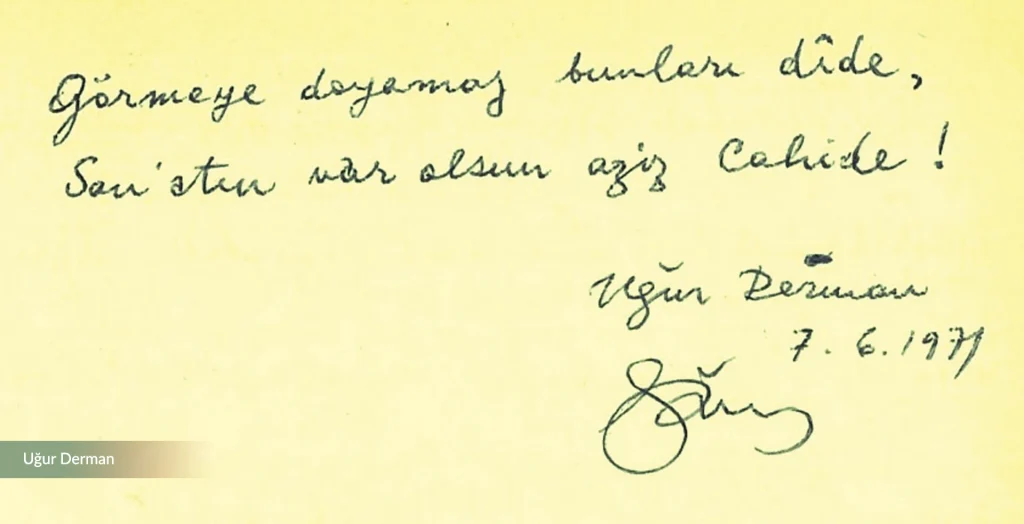 Görmeye doyamaz bunları dîde,
San'atın vâr olsun aziz Cahide!
Uğur Derman
7.6.1971
Uğur Derman